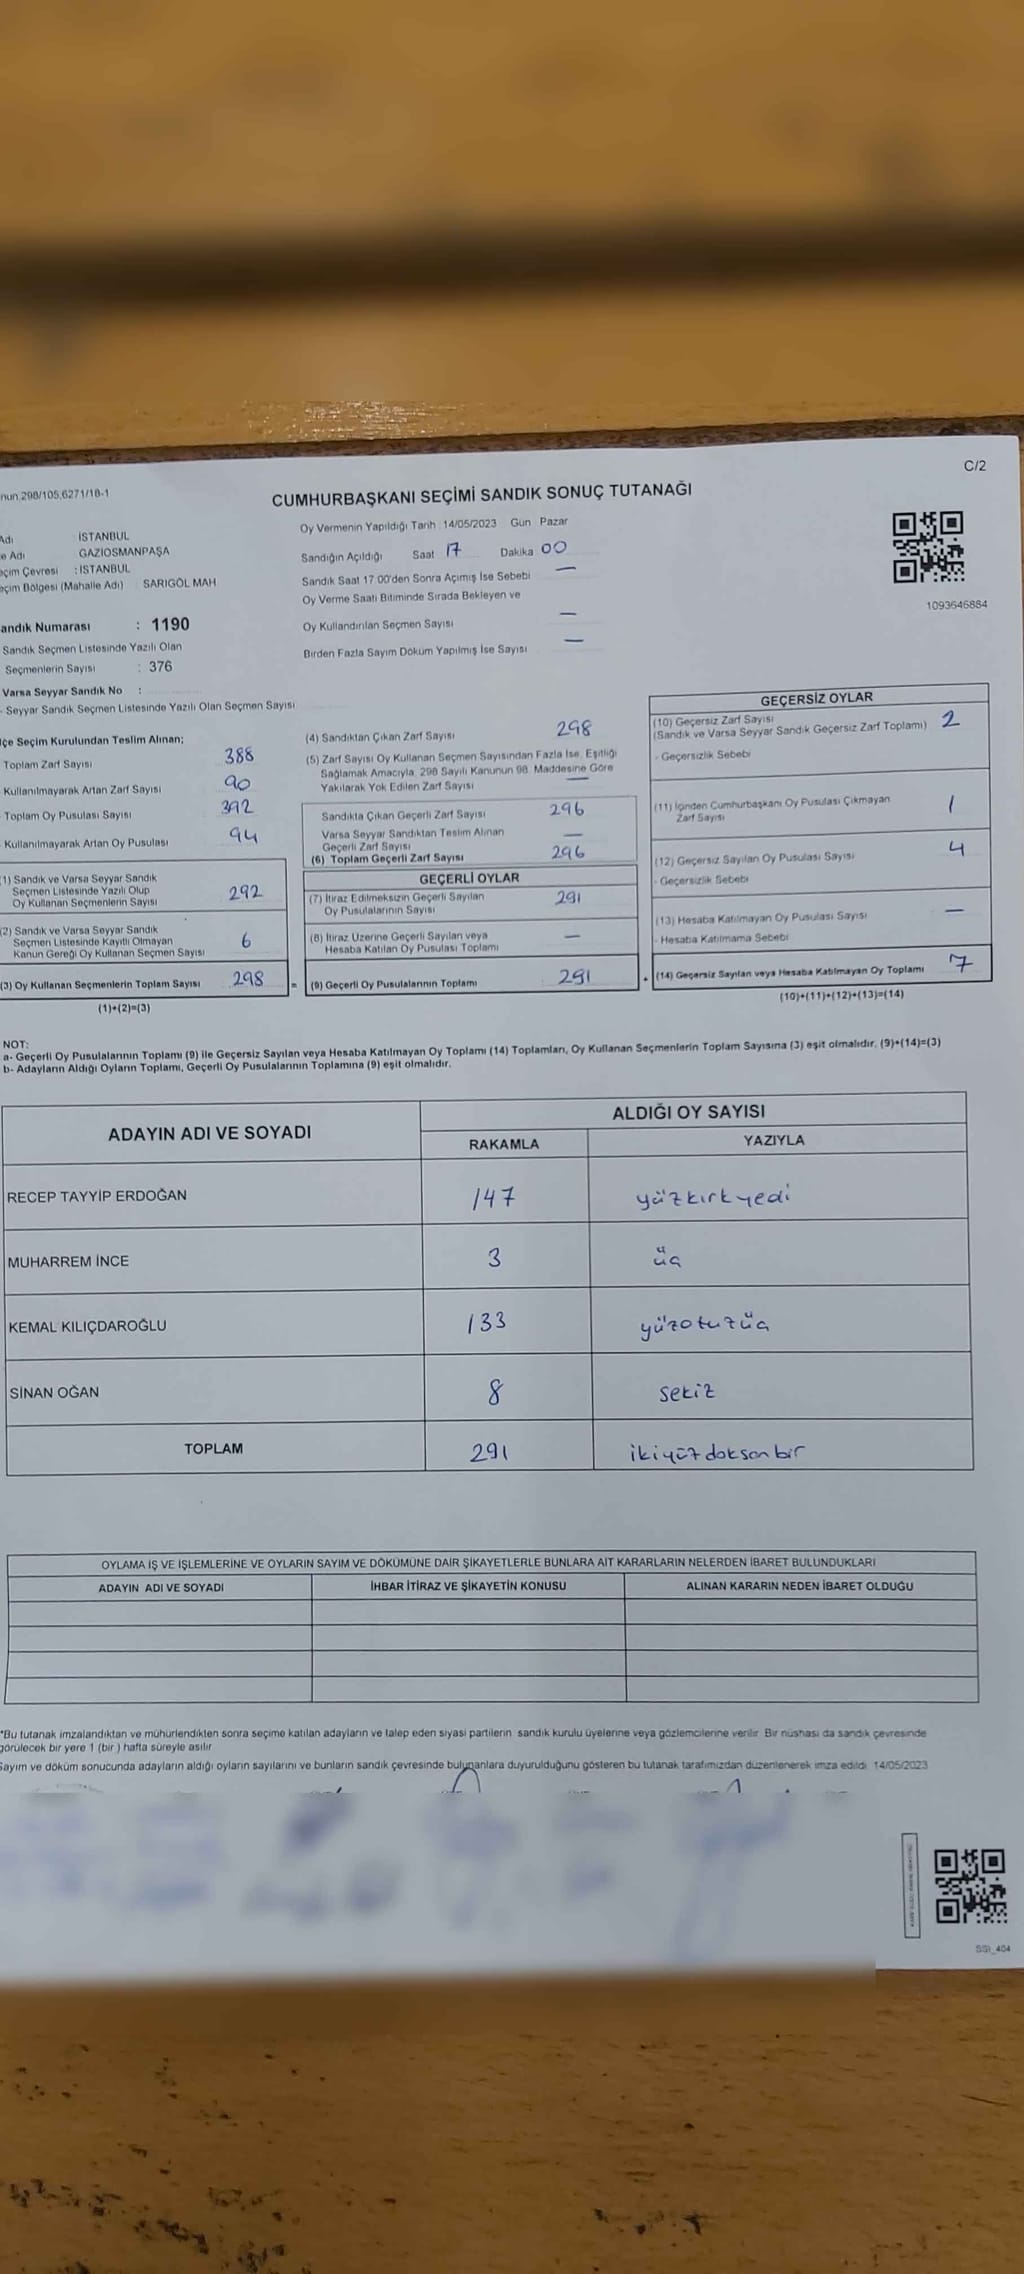 C/2
298/105,6271/18-1
CUMHURBAŞKANI SEÇİMİ SANDIK SONUÇ TUTANAĞI
Adı : İSTANBUL
Adı GAZİOSMANPAŞA
Çevresi : İSTANBUL
Bölgesi (Mahalle Adı) SARIGÖL MAH
Numarası : 1190
Sandık Seçmen Listesinde Yazılı Olan
Seçmenlerin Sayısı : 376
Varsa Seyyar Sandık No :
- Seyyar Sandık Seçmen Listesinde Yazılı Olan Seçmen Sayısı
Oy Vermenin Yapıldığı Tarih :14/05/2023 Gün Pazar
Sandığın Açıldığı Saat 17 Dakika 00
Sandık Saat 17:00'den Sonra Açımış İse Sebebi —
Oy Verme Saati Bitiminde Sırada Bekleyen ve
Oy Kullandırılan Seçmen Sayısı —
Birden Fazla Sayım Döküm Yapılmış İse Sayısı —
1093646884
Seçim Kurulundan Teslim Alınan;
Toplam Zarf Sayısı 388
Kullanılmayarak Artan Zarf Sayısı 90
Toplam Oy Pusulası Sayısı 392
Kullanılmayarak Artan Oy Pusulası 94
1) Sandık ve Varsa Seyyar Sandık
Seçmen Listesinde Yazılı Olup
Oy Kullanan Seçmenlerin Sayısı 292
2) Sandık ve Varsa Seyyar Sandık
Seçmen Listesinde Kayıtlı Olmayan
Kanun Gereği Oy Kullanan Seçmen Sayısı 6
(3) Oy Kullanan Seçmenlerin Toplam Sayısı 298
(1)+(2)=(3)
=
(4) Sandıktan Çıkan Zarf Sayısı 298
(5) Zarf Sayısı Oy Kullanan Seçmen Sayısından Fazla İse, Eşitliği
Sağlamak Amacıyla, 298 Sayılı Kanunun 98. Maddesine Göre
Yakılarak Yok Edilen Zarf Sayısı —
Sandıkta Çıkan Geçerli Zarf Sayısı 296
Varsa Seyyar Sandıktan Teslim Alınan
Geçerli Zarf Sayısı —
(6) Toplam Geçerli Zarf Sayısı 296
GEÇERLİ OYLAR
(7) İtiraz Edilmeksizin Geçerli Sayılan
Oy Pusulalarının Sayısı 291
(8) İtiraz Üzerine Geçerli Sayılan veya
Hesaba Katılan Oy Pusulası Toplamı —
(9) Geçerli Oy Pusulalarının Toplamı 291
+
GEÇERSİZ OYLAR
(10) Geçersiz Zarf Sayısı
(Sandık ve Varsa Seyyar Sandık Geçersiz Zarf Toplamı) 2
- Geçersizlik Sebebi
(11) İçinden Cumhurbaşkanı Oy Pusulası Çıkmayan
Zarf Sayısı 1
(12) Geçersiz Sayılan Oy Pusulası Sayısı 4
- Geçersizlik Sebebi
(13) Hesaba Katılmayan Oy Pusulası Sayısı —
- Hesaba Katılmama Sebebi
(14) Geçersiz Sayılan veya Hesaba Katılmayan Oy Toplamı 7
(10)+(11)+(12)+(13)=(14)
NOT:
a- Geçerli Oy Pusulalarının Toplamı (9) ile Geçersiz Sayılan veya Hesaba Katılmayan Oy Toplamı (14) Toplamları, Oy Kullanan Seçmenlerin Toplam Sayısına (3) eşit olmalıdır. (9)+(14)=(3)
b- Adayların Aldığı Oyların Toplamı, Geçerli Oy Pusulalarının Toplamına (9) eşit olmalıdır.
ADAYIN ADI VE SOYADI ALDIĞI OY SAYISI
RAKAMLA YAZIYLA
RECEP TAYYİP ERDOĞAN 147 yüzkırkyedi
MUHARREM İNCE 3 üç
KEMAL KILIÇDAROĞLU 133 yüzotuzüç
SİNAN OĞAN 8 sekiz
TOPLAM 291 ikiyüzdoksanbir
OYLAMA İŞ VE İŞLEMLERİNE VE OYLARIN SAYIM VE DÖKÜMÜNE DAİR ŞİKAYETLERLE BUNLARA AİT KARARLARIN NELERDEN İBARET BULUNDUKLARI
ADAYIN ADI VE SOYADI İHBAR İTİRAZ VE ŞİKAYETİN KONUSU ALINAN KARARIN NEDEN İBARET OLDUĞU
*Bu tutanak imzalandıktan ve mühürlendikten sonra seçime katılan adayların ve talep eden siyasi partilerin sandık kurulu üyelerine veya gözlemcilerine verilir. Bir nüshası da sandık çevresinde
görülecek bir yere 1 (bir ) hafta süreyle asılır
Sayım ve döküm sonucunda adayların aldığı oyların sayılarını ve bunların sandık çevresinde bulunanlara duyurulduğunu gösteren bu tutanak tarafımızdan düzenlenerek imza edildi. 14/05/2023
SSI_404